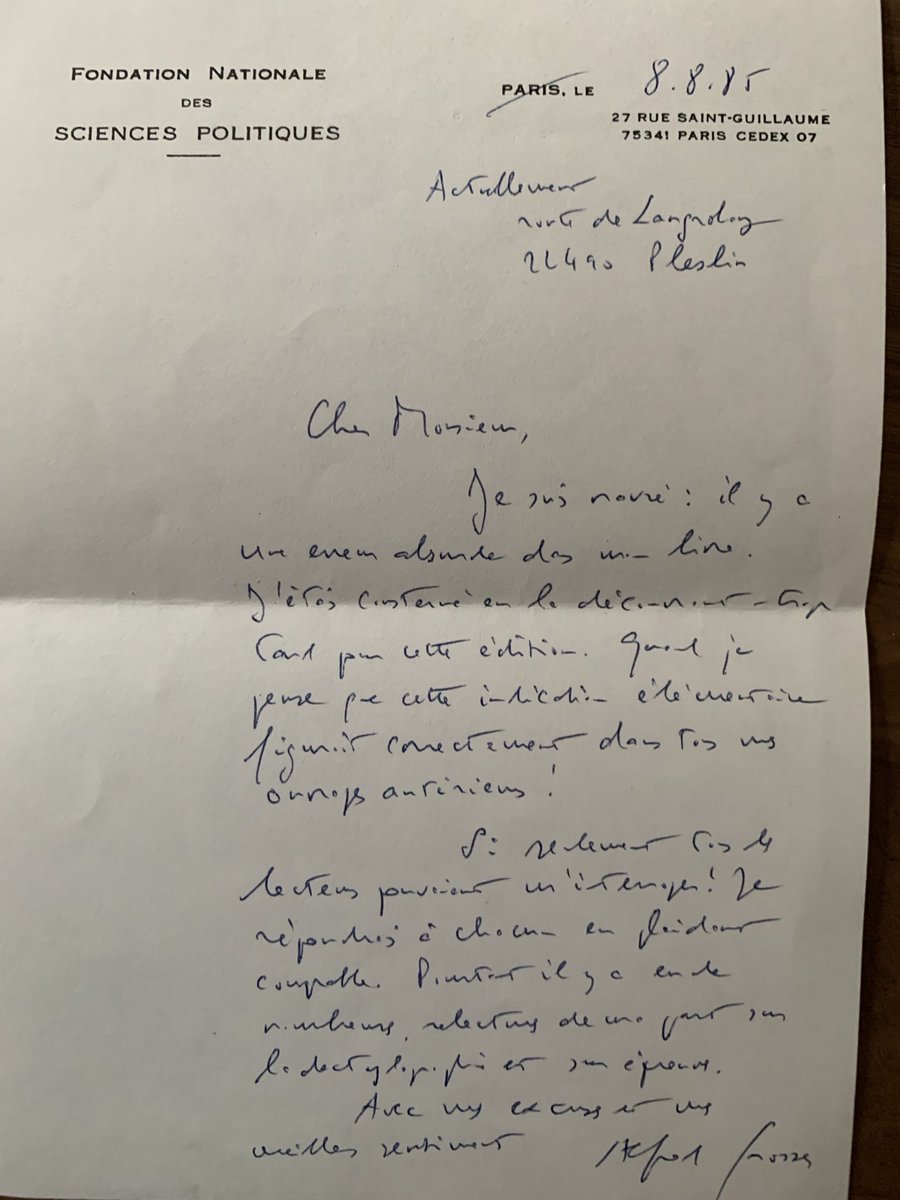 FONDATION NATIONALE
DES
SCIENCES POLITIQUES
PARIS, LE 8.8.85
27 RUE SAINT-GUILLAUME
75341 PARIS CEDEX 07
Actuellement
route de Langrolay
22490 Pleslin
Cher Monsieur,
Je suis navré : il y a
une erreur absurde dans mon livre.
J'étais consterné en la découvrant - trop
tard pour cette édition. Quand je
pense que cette indication élémentaire
figurait correctement dans tous mes
ouvrages antérieurs !
Si seulement tous les
lecteurs pouvaient m'interroger ! Je
répondrais à chacun en plaidant
coupable. Pourtant il y a eu de
nombreuses relectures de ma part sur
la dactylographie et sur épreuves.
Avec mes excuses et mes
meilleurs sentiments
Alfred Grosser